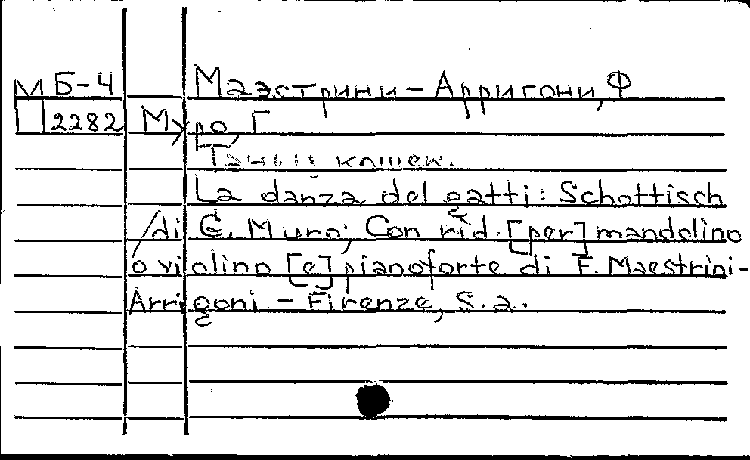 М Б-4 Маэстрини-Арригони, Ф
П 2282 Муро, Г
Танец кошек.
La danza del gatti: Schottisch
/di G. Muro; Con rid. [per] mandolino
o violino [e] pianoforte di F. Maestrini-
Arrigoni - Firenze, s.a.